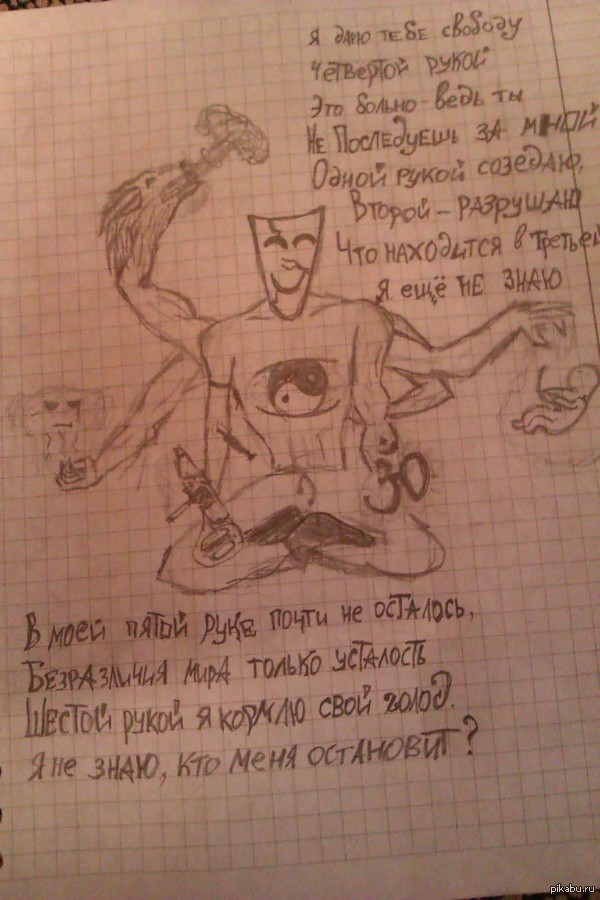 Я дарю тебе свободу
Четвертой рукой
Это больно-ведь ты
Не последуешь за мной
Одной рукой созедаю,
Второй-разрушаю
Что находится в третьей
Я ещё не знаю
ॐ
В моей пятой руке почти не осталось,
Безразличия мира только усталость
Шестой рукой я кормлю свой голод.
Я не знаю, кто меня остановит?
pikabu.ru